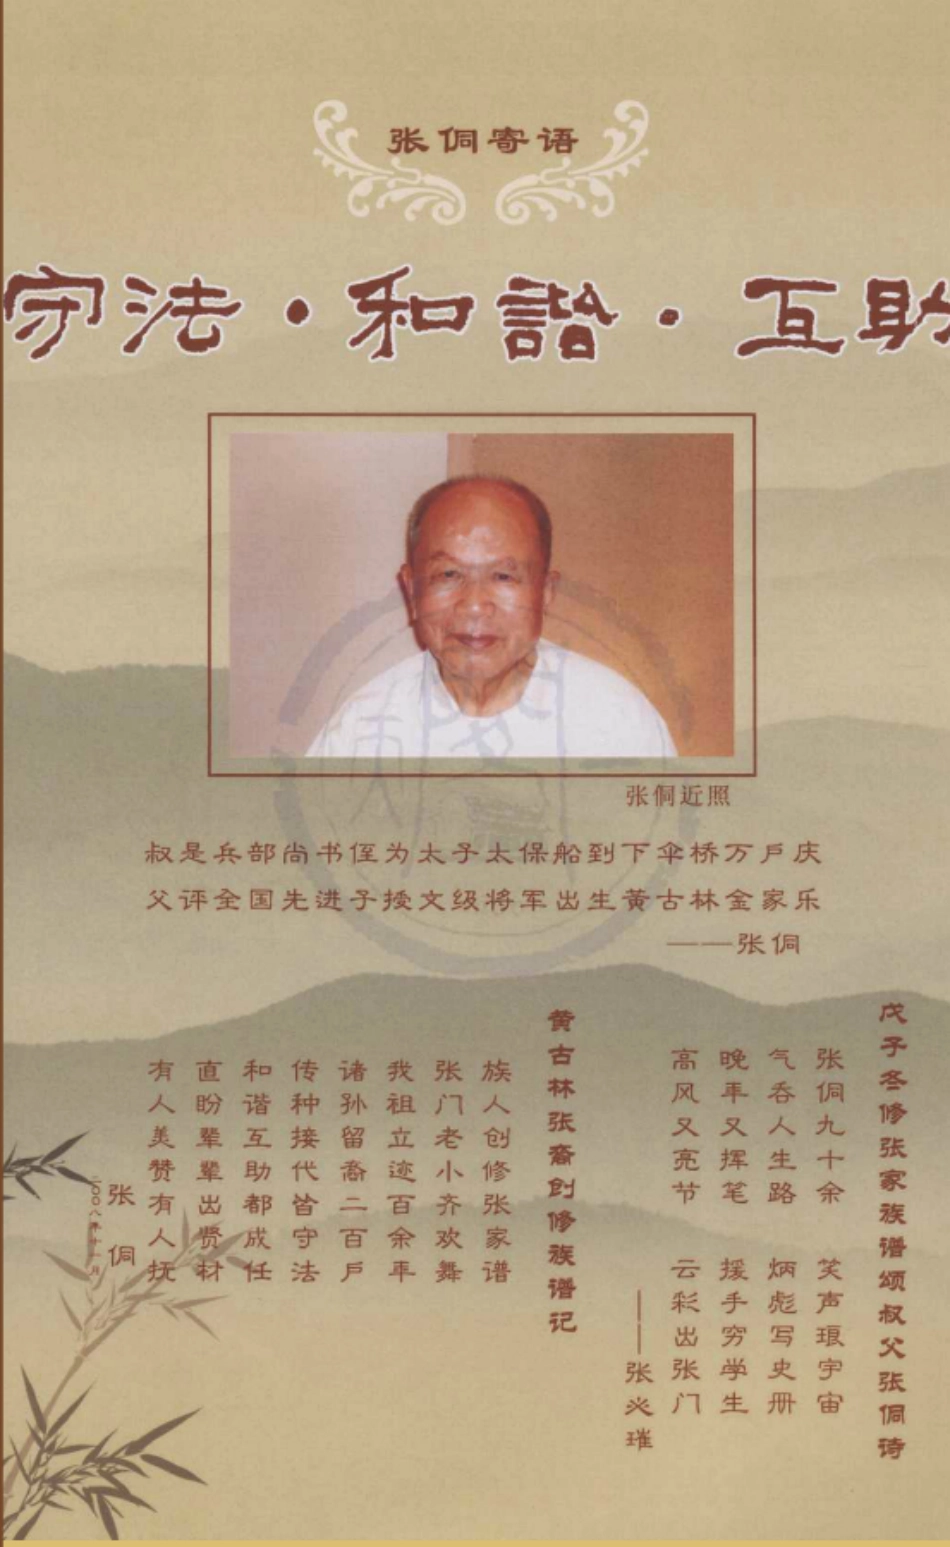 张侗寄语
守法·和諧·互助
张侗近照
叔是兵部尚书侄为太子太保船到下伞桥万户庆
父评全国先进子授文级将军出生黄古林金家乐
——张侗
戊子冬修张家族谱颂叔父张侗诗
张侗九十余 笑声琅宇宙
气吞人生路 炳彪写史册
晚年又挥笔 援手穷学生
高风又亮节 云彩出张门
——张必璀
黄古林张裔创修族谱记
族人创修张家谱
张门老小齐欢舞
我祖立迹百余年
诸孙留裔二百户
传种接代皆守法
和谐互助都成任
直盼辈辈出贤材
有人美赞有人抚
张侗
二〇〇八年十一月